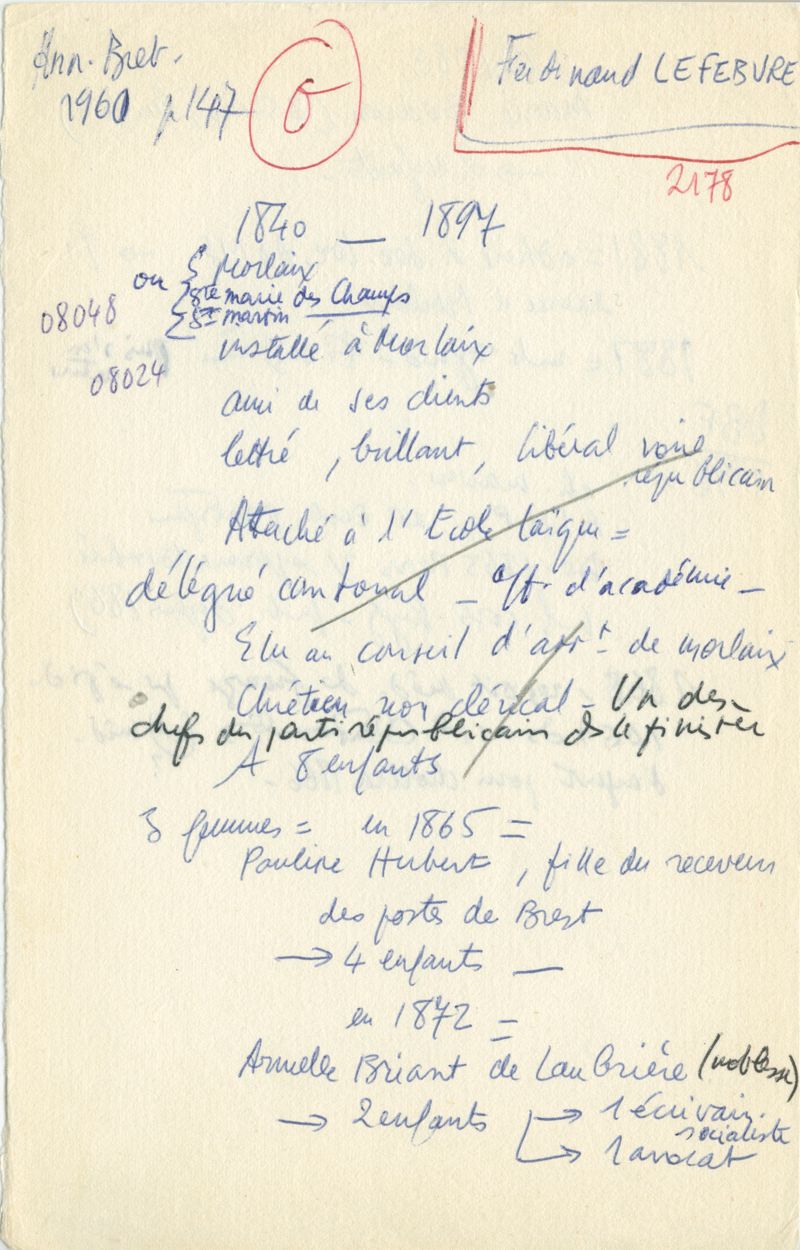 Ann. Bret.
1960 p147
6
Ferdinand LEFEBVRE
2178
1840 — 1897
ou { Morlaix
Ste marie des Champs
St martin
08048
08024
installé à Morlaix
ami de ses clients
lettré, brillant, libéral voire
républicain
Attaché à l'Ecole laïque =
délégué cantonal - off. d'académie -
Elu au conseil d'arrt de morlaix
Chrétien non clérical - Un des
chefs du parti républicain ds le finistère
A 8 enfants
3 femmes = en 1865 =
Pauline Hubert, fille du receveur
des postes de Brest
→ 4 enfants —
en 1872 =
Armelle Briant de Laubrière (noblesse)
→ 2 enfants → 1 écrivain
socialiste
→ 1 avocat